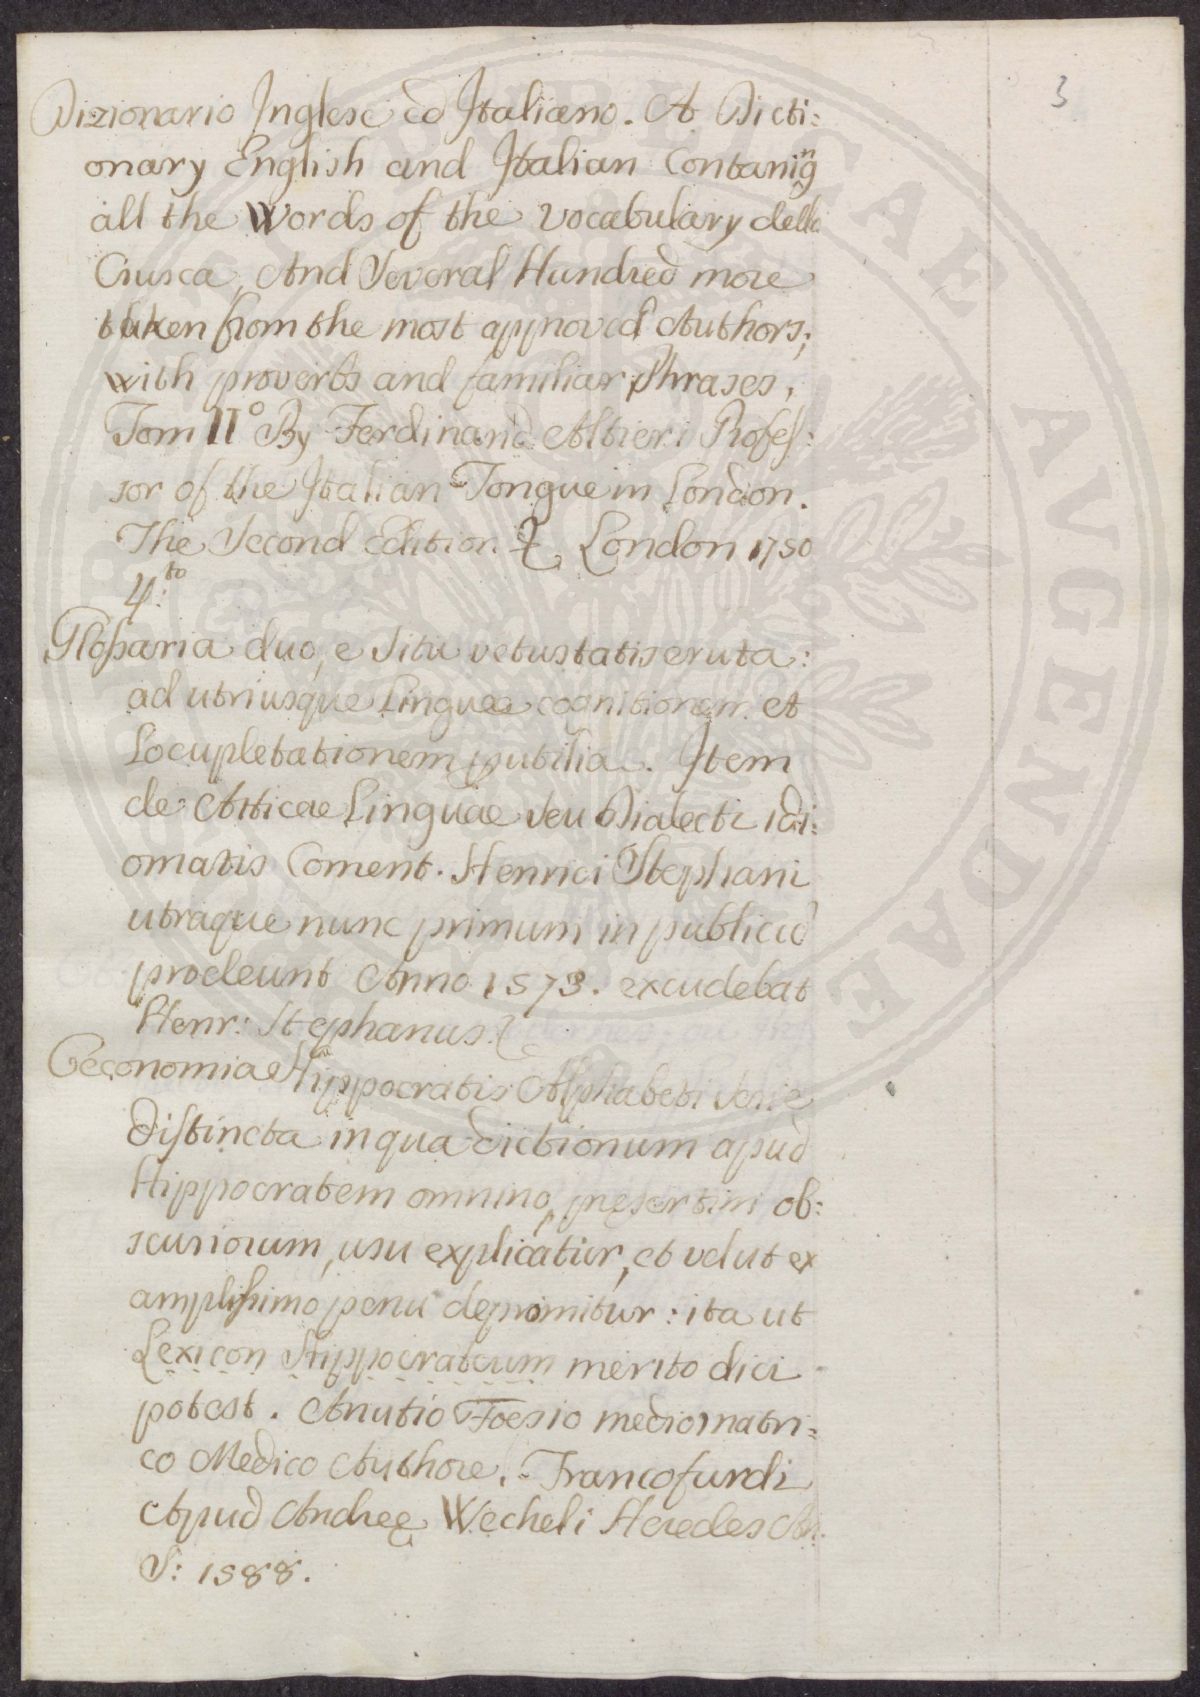 3
Dizionario Inglese ed Italiano. A Dicti:
onary English and Italian Contaning
all the Words of the Vocabulary della
Crusca, And Several Hundred more
taken from the most approved Authors;
with proverbs and familiar Phrases,
Tom II° By Ferdinand Altieri Profes:
sor of the Italian Tongue in London.
The Second Edition London 1750
4:to
Glossaria duo, e situ vetustatis eruta:
ad utriusque Linguae cognitionem et
Locupletationem putilia. Item
de Atticae Linguae seu Dialecti idi:
omatis Coment. Henrici Stephani
utraque nunc primum in publicũ
prodeunt Anno 1573. excudebat
Henr: Stephanus.
Oeconomiae Hippocratis Alphabeti Serie
distincta in qua dictionum apud
Hippocratem omnino, pręsertim ob:
scuriorum, usu explicatur, et velut ex
amplissimo penu depromitur: ita ut
Lexicon Hippocrateum merito dici
potest. Anutio Foesio mediomatri:
co Medico Authore. Francofurdi
Apud Andreę Wecheli Heredes An.
S: 1588.
PUBLICAE AVGENDAE